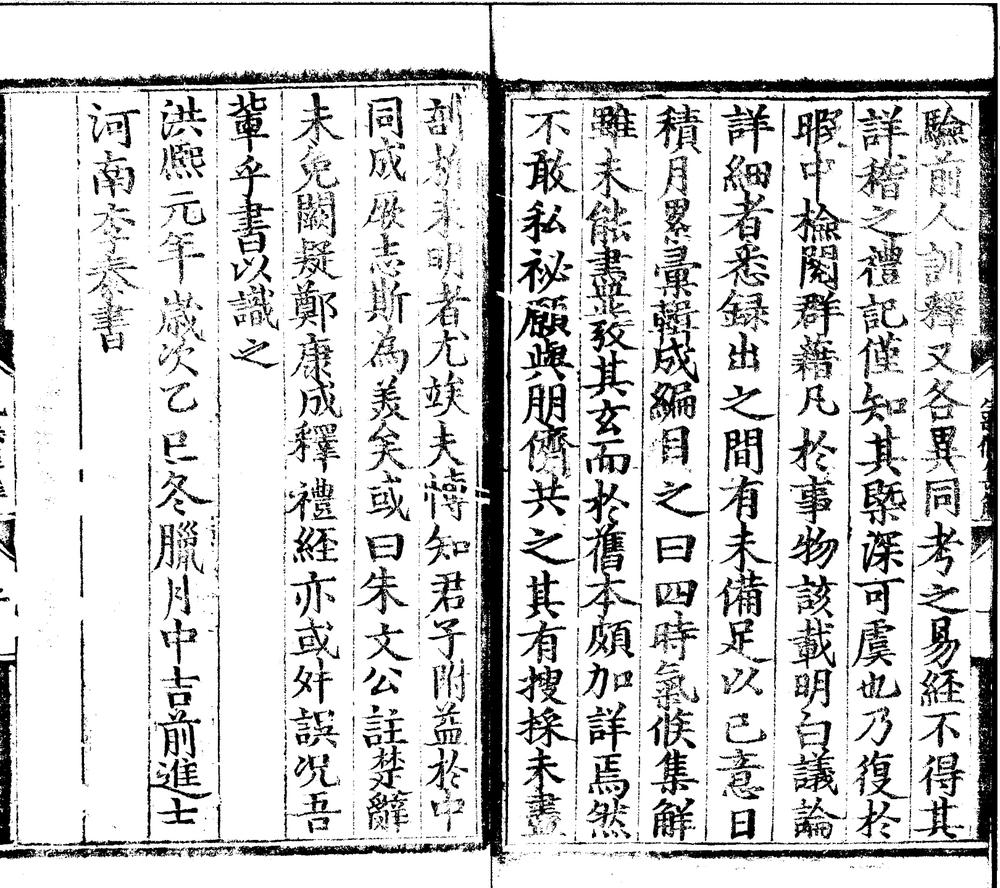 驗前人訓釋又各異同考之易經不得其
詳稽之禮記僅知其槩深可虞也乃復於
暇中檢閱群藉凡於事物該載明白議論
詳細者悉録出之間有未備足以己意日
積月累彚輯成編目之曰四時氣候集觧
雖未能盡其玄而於舊本頗加詳焉然
不敢私祕願與朋儕共之其有搜採未盡
剖析未明者尤竢夫慱知君子附益於中
同成厥志斯為羙矣或曰朱文公註楚辭
未免闕疑鄭康成釋禮經亦或舛誤况吾
軰乎書以識之
洪熈元年歲次乙巳冬臘月中吉前進士
河南李泰書